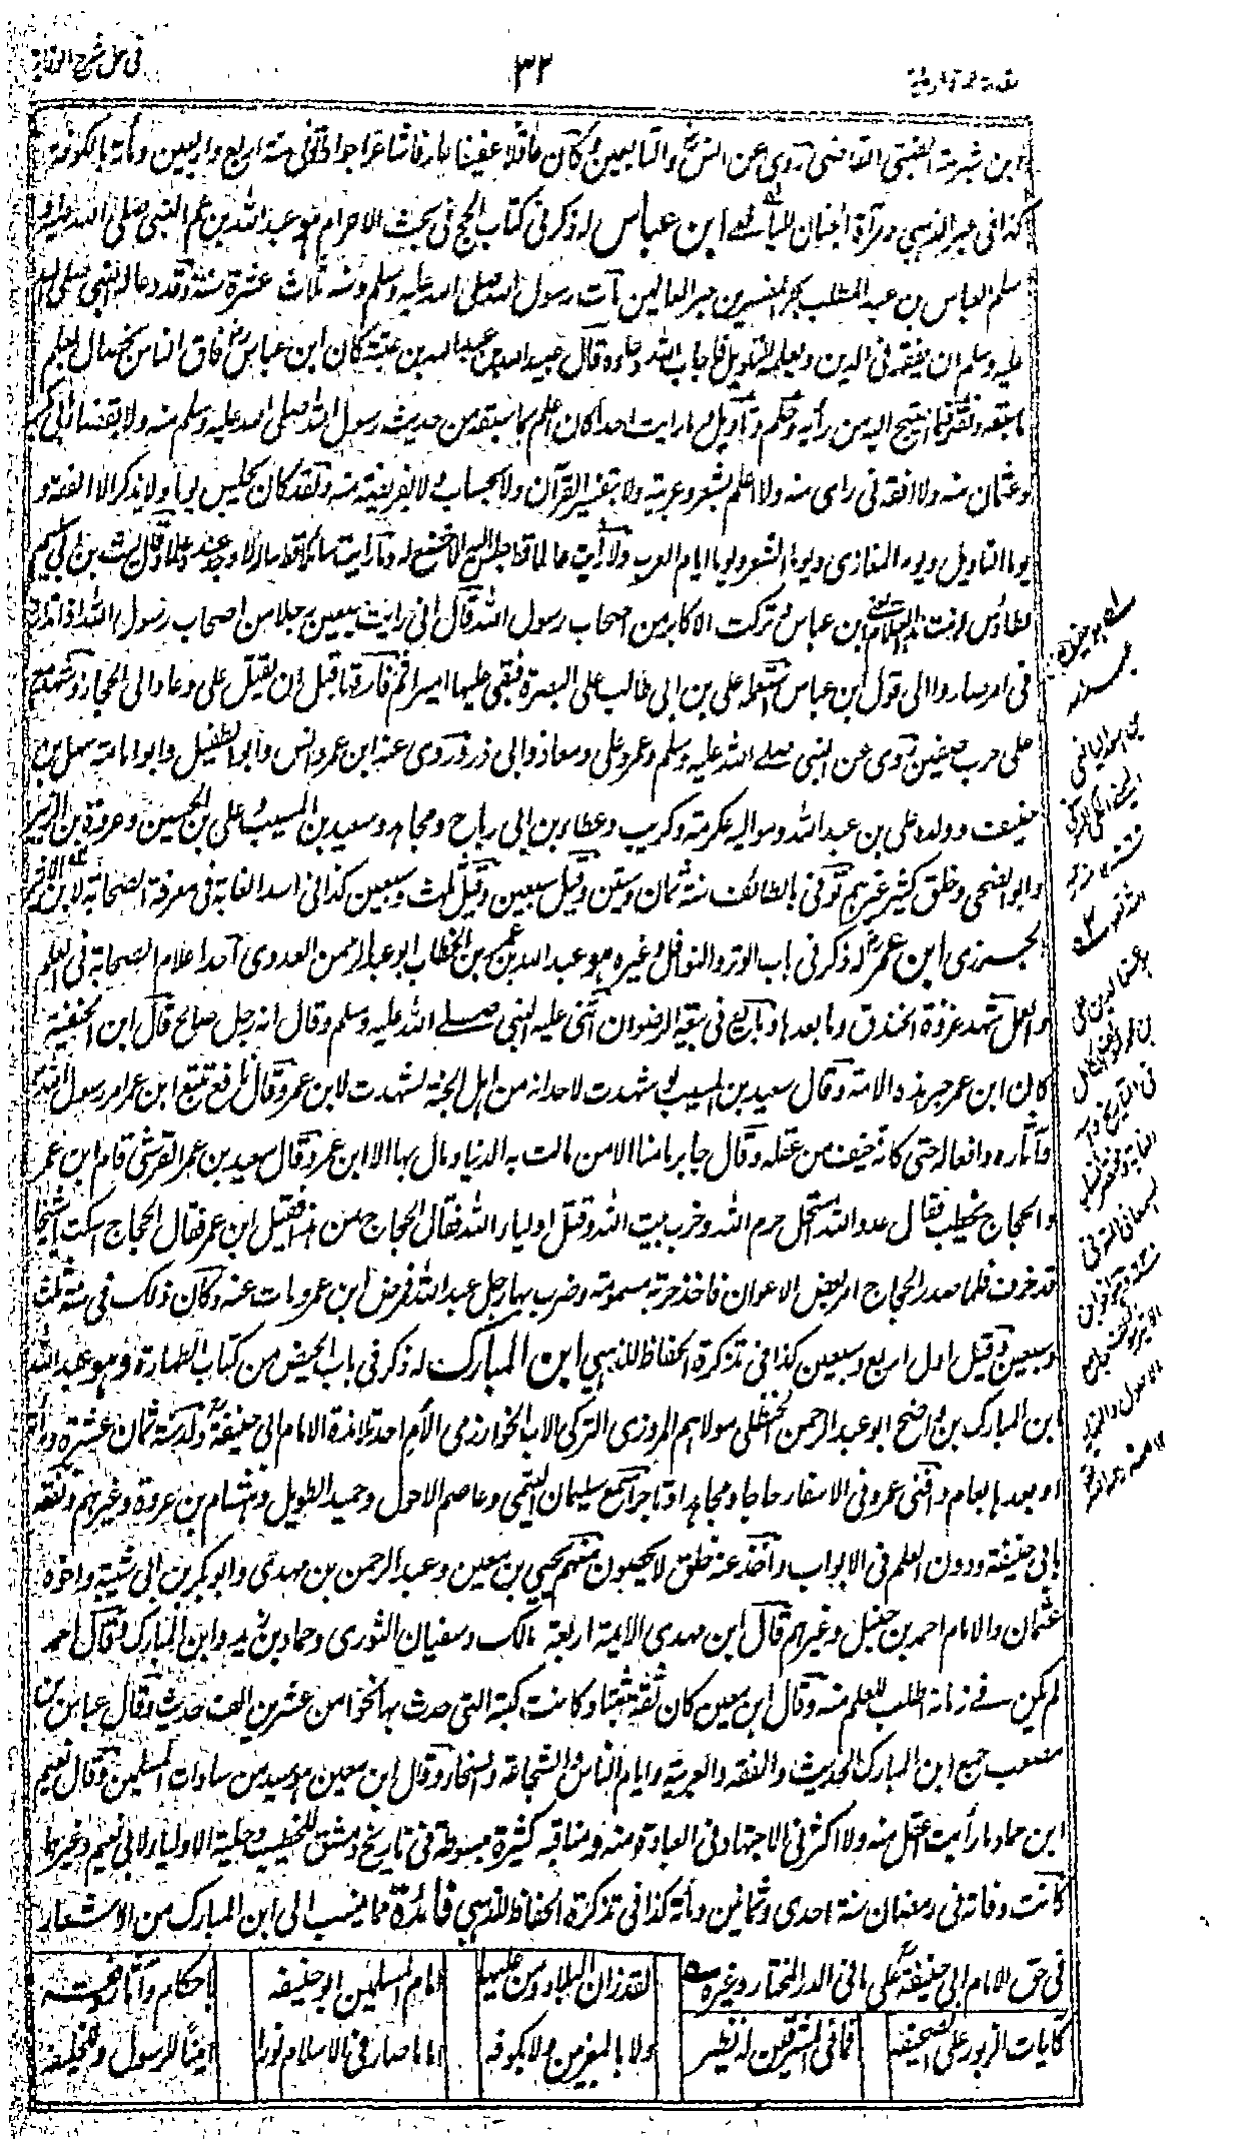 في حل شرح الوقاية
٣٢
ابن شبرمة الضبي القاضي روى عن انس والتابعين وكان عاقلا عفيفا عارفا شاعرا جوادا توفى سنة اربع واربعين ومأة بالكوفة
كذا في عبر الذهبي ومرآة الجنان لليافعي ابن عباس له ذكر في كتاب الحج في بحث الاحرام هو عبد الله بن عم النبي صلى الله عليه و
سلم العباس بن عبد المطلب بحر المفسرين حبر العالمين مات رسول الله صلى الله عليه وسلم وسنه ثلاث عشرة سنة وقد دعا له النبي صلى الله
عليه وسلم ان يفقهه في الدين ويعلمه التاويل فاجاب الله دعاءه وقال عبيد الله بن عبد الله بن عتبة كان ابن عباس فاق الناس بخصال لعلم
ما سبقه وفقه فيما احتيج اليه من رأيه وحكم وتأويل وما رايت احدا كان اعلم بما سبقه من حديث رسول الله صلى الله عليه وسلم منه ولا بقضاء ابي بكر
وعثمان منه ولا افقه في راى منه ولا اعلم بشعر وعربية ولا بتفسير القرآن ولا بحساب ولا بفريضة منه ولقد كان يجلس يوما ولا يذكر الا الفقه و
يوما التاويل ويوما المغازي ويوما الشعر ويوما ايام العرب ولا رأيت عالما قط جلس اليه الا خضع له وما رايت سائلا قط سأله الا وجد عنده علما وقال ليث بن ابي سليم
لطاؤس لزمت هذا الغلام اي ابن عباس وتركت الاكابر من اصحاب رسول الله قال اني رايت سبعين رجلا من اصحاب رسول الله اذا تدارؤا
في امر صاروا الى قول ابن عباس استعمله علي بن ابي طالب على البصرة فبقي عليها اميرا ثم فارقها قبل ان يقتل علي وعاد الى الحجاز وشهد مع
علي حرب صفين روى عن النبي صلى الله عليه وسلم وعمر وعلي ومعاذ وابي ذر وروى عنه ابن عمر وانس وابو الطفيل وابو امامة سهل بن
حنيف وولده علي بن عبد الله ومواليه عكرمة وكريب وعطاء بن ابي رباح ومجاهد وسعيد بن المسيب وعلي بن الحسين وعروة بن الزبير
وابو الضحى وخلق كثير غيرهم توفي بالطائف سنة ثمان وستين وقيل سبعين وقيل ثلث وسبعين كذا في اسد الغابة في معرفة الصحابة لابن الاثير
الجزري ابن عمر له ذكر في باب الوتر والنوافل وغيره هو عبد الله بن عمر بن الخطاب ابو عبد الرحمن العدوي احد اعلام الصحابة في العلم
والعمل شهد غزوة الخندق وما بعدها وبايع في بيعة الرضوان اثنى عليه النبي صلى الله عليه وسلم وقال انه رجل صالح قال ابن الحنفية
كان ابن عمر حبر هذه الامة وقال سعيد بن المسيب لو شهدت لاحد انه من اهل الجنة لشهدت لابن عمر وقال نافع تتبع ابن عمر امر رسول الله
وآثاره وافعاله حتى كانه خيف من عقله وقال جابر ما منا الا من مالت به الدنيا ومال بها الا ابن عمر وقال سعيد بن عمر القرشي قام ابن عمر
والحجاج يخطب فقال عدو الله استحل حرم الله وخرب بيت الله وقتل اولياء الله فقال الحجاج من هذا فقيل ابن عمر فقال الحجاج اسكت يا شيخا
قد خرف فلما صدر الحجاج امر بعض الاعوان فاخذ حربة مسمومة وضرب بها رجل عبد الله فمرض ابن عمر ومات عنه وكان ذلك في سنة ثلث
وسبعين وقيل اول اربع وسبعين كذا في تذكرة الحفاظ للذهبي ابن المبارك له ذكر في باب الحيض من كتاب الطهارة وهو عبد الله
ابن المبارك بن واضح ابو عبد الرحمن الحنظلي مولاهم المروزي التركي الاب الخوارزمي الأم احد تلامذة الامام ابي حنيفة ولد سنة ثمان عشرة ومأة
او بعدها بعام وافنى عمره في الاسفار حاجا ومجاهدا وتاجرا سمع سليمان التيمي وعاصم الاحول وحميد الطويل وهشام بن عروة وغيرهم وتفقه
بابي حنيفة ودون العلم في الابواب واخذ عنه خلق لا يحصون منهم يحيى بن معين وعبد الرحمن بن مهدي وابو بكر بن ابي شيبة واخوه
عثمان والامام احمد بن حنبل وغيرهم قال ابن مهدي الائمة اربعة مالك وسفيان الثوري وحماد بن زيد وابن المبارك وقال احمد
لم يكن في زمانه اطلب للعلم منه وقال ابن معين كان ثقة متثبتا وكانت كتبه التي حدث بها نحوا من عشرين الف حديث وقال عباس بن
مصعب جمع ابن المبارك الحديث والفقه والعربية وايام الناس والشجاعة والسخاء وقال ابن معين هو سيد من سادات المسلمين وقال نعيم
ابن حماد ما رأيت اعقل منه ولا اكثر في الاجتهاد في العبادة منه ومناقبه كثيرة مبسوطة في تاريخ دمشق للخطيب وحلية الاولياء لابي نعيم وغيرهما
كانت وفاته في رمضان سنة احدى وثمانين ومأة كذا في تذكرة الحفاظ للذهبي فائدة مما ينسب الى ابن المبارك من الاشعار
في حق الامام ابي حنيفة على ما في الدر المختار وغيره لقد زان البلاد ومن عليها امام المسلمين ابو حنيفه باحكام وآثار وفقه
كآيات الزبور على الصحيفه فما في المشرقين له نظير ولا بالمغربين ولا بكوفه اماما صار في الاسلام نورا امينا للرسول وللخليفه